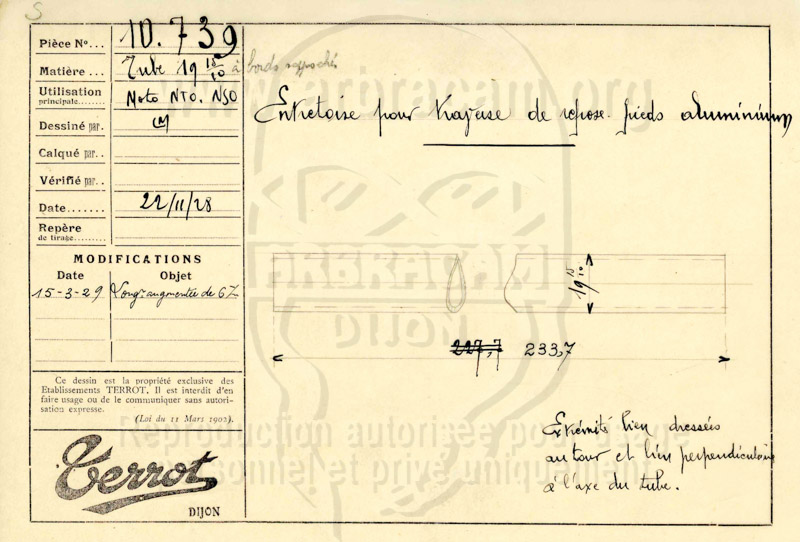 S
Pièce N°... 10.739
Matière ... Tube 19 15/10 à bords rapprochés
Utilisation principale....... Moto NTO. NSO
Dessiné par. LM
Calqué par..
Vérifié par..
Date....... 22/11/28
Repère de tirage.........
MODIFICATIONS
Date Objet
15-3-29 Longr augmentée de 6
Ce dessin est la propriété exclusive des
Etablissements TERROT. Il est interdit d'en
faire usage ou de le communiquer sans autori-
sation expresse.
(Loi du 11 Mars 1902).
Terrot
DIJON
www.arbracam.org
Entretoise pour traverse de repose-pieds aluminium
ARBRACAM
DIJON
19 15/10
227,7 233,7
Reproduction autorisée pour usage
personnel et privé uniquement
Extrémité bien dressées
au tour et bien perpendiculaire
à l'axe du tube.